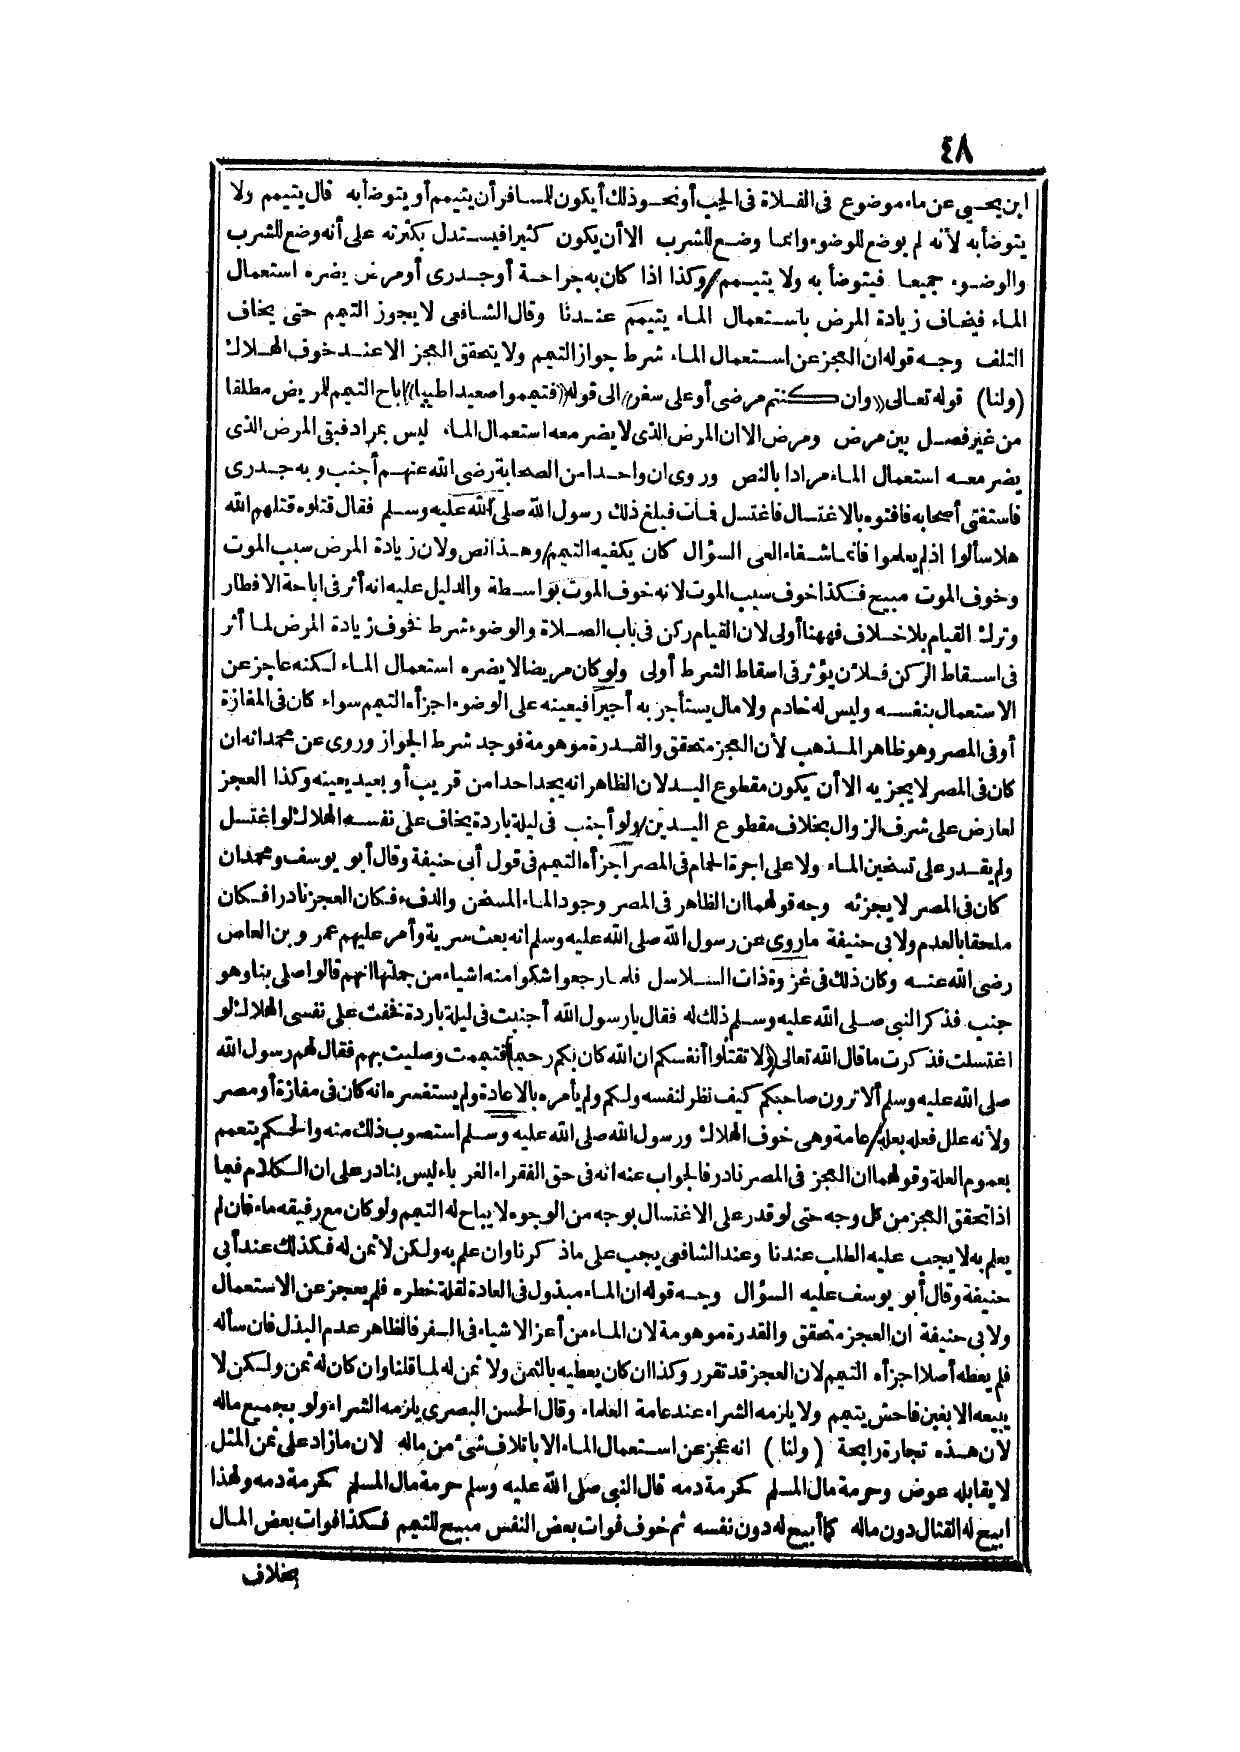 ٤٨
ابن يحيى عن ماء موضوع فى الفلاة فى الحب أو نحو ذلك أيكون للمسافر أن يتيمم أو يتوضأ به قال يتيمم ولا
يتوضأ به لأنه لم يوضع للوضوء وانما وضع للشرب الا أن يكون كثيرا فيستدل بكثرته على أنه وضع للشرب
والوضوء جميعا فيتوضأ به ولا يتيمم وكذا اذا كان به جراحة أو جدرى أو مرض يضره استعمال
الماء فيخاف زيادة المرض باستعمال الماء يتيمم عندنا وقال الشافعى لا يجوز التيمم حتى يخاف
التلف وجه قوله ان العجز عن استعمال الماء شرط جواز التيمم ولا يتحقق العجز الا عند خوف الهلاك
(ولنا) قوله تعالى وان كنتم مرضى أو على سفر الى قوله فتيمموا صعيدا طيبا اباح التيمم للمريض مطلقا
من غير فصل بين مرض ومرض الا ان المرض الذى لا يضر معه استعمال الماء ليس بمراد فبقى المرض الذى
يضر معه استعمال الماء مرادا بالنص وروى ان واحدا من الصحابة رضى الله عنهم أجنب وبه جدرى
فاستفتى أصحابه فافتوه بالاغتسال فاغتسل فمات فبلغ ذلك رسول الله صلى الله عليه وسلم فقال قتلوه قتلهم الله
هلا سألوا اذ لم يعلموا فانما شفاء العى السؤال كان يكفيه التيمم وهذا نص ولان زيادة المرض سبب الموت
وخوف الموت مبيح فكذا خوف سبب الموت لانه خوف الموت بواسطة والدليل عليه انه أثر فى اباحة الافطار
وترك القيام بلا خلاف فههنا أولى لان القيام ركن فى باب الصلاة والوضوء شرط فخوف زيادة المرض لما أثر
فى اسقاط الركن فلأن يؤثر فى اسقاط الشرط أولى ولو كان مريضا لا يضره استعمال الماء لكنه عاجز عن
الاستعمال بنفسه وليس له خادم ولا مال يستأجر به أجيرا فيعينه على الوضوء اجزأه التيمم سواء كان فى المفازة
أو فى المصر وهو ظاهر المذهب لأن العجز متحقق والقدرة موهومة فوجد شرط الجواز وروى عن محمد انه ان
كان فى المصر لا يجزيه الا أن يكون مقطوع اليد لان الظاهر انه يجد احدا من قريب أو بعيد يعينه وكذا العجز
لعارض على شرف الزوال بخلاف مقطوع اليدين ولو أجنب فى ليلة باردة يخاف على نفسه الهلاك لو اغتسل
ولم يقدر على تسخين الماء ولا على اجرة الحمام فى المصر أجزأه التيمم فى قول أبى حنيفة وقال أبو يوسف ومحمد ان
كان فى المصر لا يجزئه وجه قولهما ان الظاهر فى المصر وجود الماء المسخن والدفء فكان العجز نادرا فكان
ملحقا بالعدم ولابى حنيفة ماروى عن رسول الله صلى الله عليه وسلم انه بعث سرية وأمر عليهم عمرو بن العاص
رضى الله عنه وكان ذلك فى غزوة ذات السلاسل فلما رجعوا شكوا منه اشياء من جملتها انهم قالوا صلى بنا وهو
جنب فذكر النبى صلى الله عليه وسلم ذلك له فقال يا رسول الله أجنبت فى ليلة باردة فخفت على نفسى الهلاك لو
اغتسلت فذكرت ما قال الله تعالى ولا تقتلوا أنفسكم ان الله كان بكم رحيما فتيممت وصليت بهم فقال لهم رسول الله
صلى الله عليه وسلم ألا ترون صاحبكم كيف نظر لنفسه ولكم ولم يأمره بالاعادة ولم يستفسره انه كان فى مفازة أو مصر
ولأنه علل فعله بعلة عامة وهى خوف الهلاك ورسول الله صلى الله عليه وسلم استصوب ذلك منه والحكم يتعمم
بعموم العلة وقولهما ان العجز فى المصر نادر فالجواب عنه انه فى حق الفقراء الغرباء ليس بنادر على ان الكلام فيما
اذا تحقق العجز من كل وجه حتى لو قدر على الاغتسال بوجه من الوجوه لا يباح له التيمم ولو كان مع رفيقه ماء فان لم
يعلم به لا يجب عليه الطلب عندنا وعند الشافعى يجب على ماذكرنا وان علم به ولكن لا ثمن له فكذلك عند أبى
حنيفة وقال أبو يوسف عليه السؤال وجه قوله ان الماء مبذول فى العادة لقلة خطره فلم يعجز عن الاستعمال
ولابى حنيفة ان العجز متحقق والقدرة موهومة لان الماء من أعز الاشياء فى السفر فالظاهر عدم البذل فان سأله
فلم يعطه أصلا اجزأه التيمم لان العجز قد تقرر وكذا ان كان يعطيه بالثمن ولا ثمن له لما قلنا وان كان له ثمن ولكن لا
يبيعه الا بغبن فاحش يتيمم ولا يلزمه الشراء عند عامة العلماء وقال الحسن البصرى يلزمه الشراء ولو بجميع ماله
لأن هذه تجارة رابحة (ولنا) انه عجز عن استعمال الماء الا باتلاف شئ من ماله لان ما زاد على ثمن المثل
لا يقابله عوض وحرمة مال المسلم كحرمة دمه قال النبى صلى الله عليه وسلم حرمة مال المسلم كحرمة دمه ولهذا
ابيح له القتال دون ماله كما أبيح له دون نفسه ثم خوف فوات بعض النفس مبيح للتيمم فكذا فوات بعض المال
بخلاف